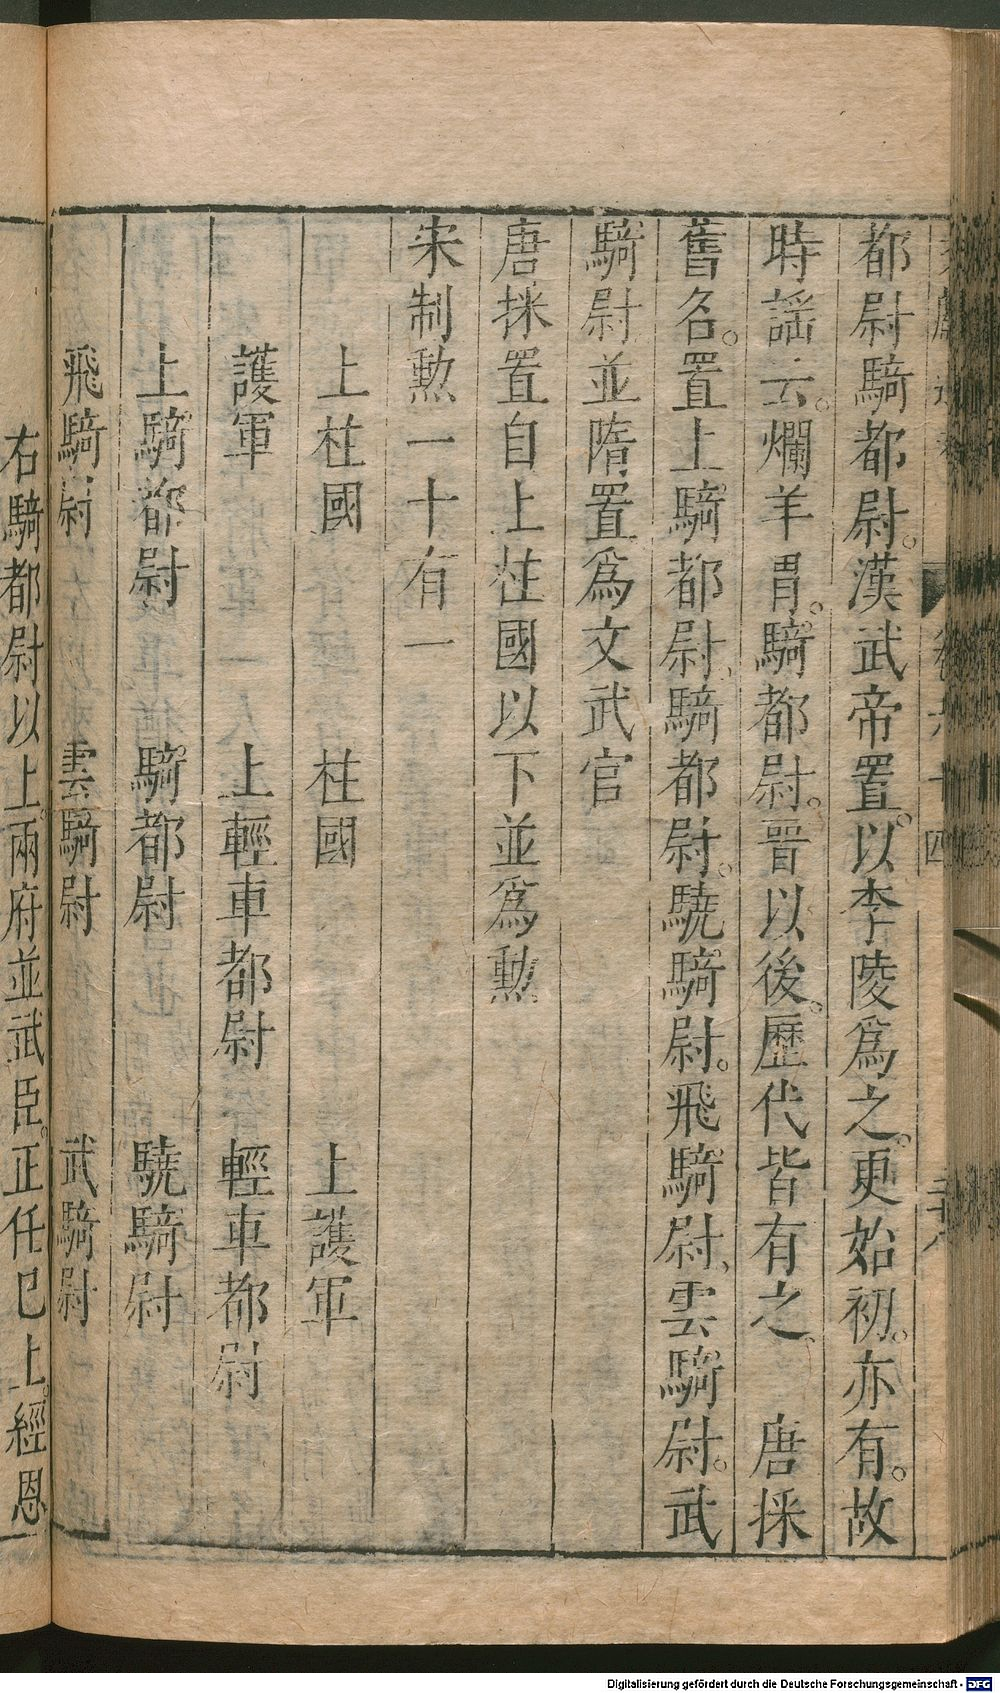 卷六十四
都尉騎都尉。漢武帝置。以李陵爲之。更始初。亦有。故
時謡云。爛羊胃。騎都尉。晉以後。歷代皆有之。　唐採
舊名。置上騎都尉、騎都尉。驍騎尉。飛騎尉、雲騎尉。武
騎尉並隋置爲文武官
唐採置自上柱國以下並爲勲
宋制勲一十有一
上柱國　柱國　上護軍
護軍　上輕車都尉　輕車都尉
上騎都尉　騎都尉　驍騎尉
飛騎尉　雲騎尉　武騎尉
右騎都尉以上。兩府並武臣。正任已上。經恩
Digitalisierung gefördert durch die Deutsche Forschungsgemeinschaft - DFG